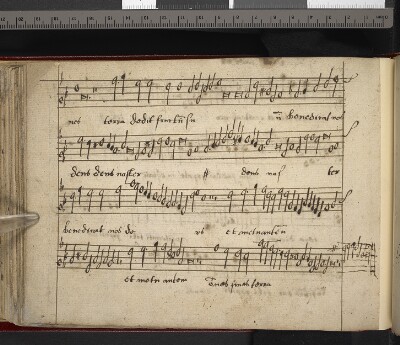 nos terra dedit fructu su benedicat nos
deus deus noster deus nos ter
benedicat nos de us et metuant eu
et metuant eum fines terra